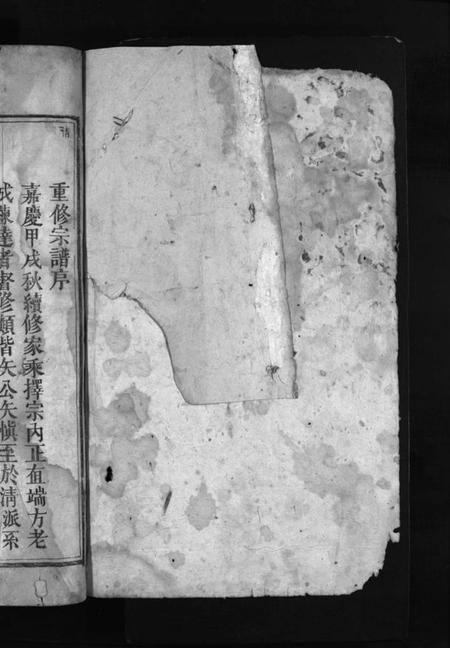 重修宗譜序
嘉慶甲戌秋續修家乘擇宗內正直端方老
成練達者督修類皆矢公矢慎至於清派系